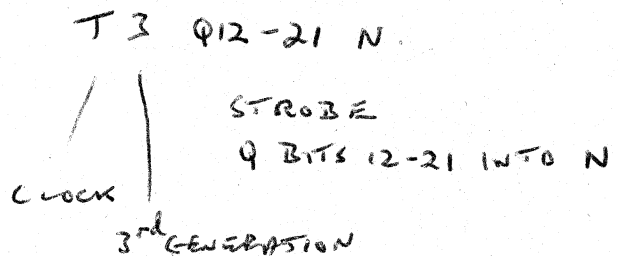 T 3 Q12-21 N.
STROBE
Q BITS 12-21 INTO N
CLOCK
3rd GENERATION